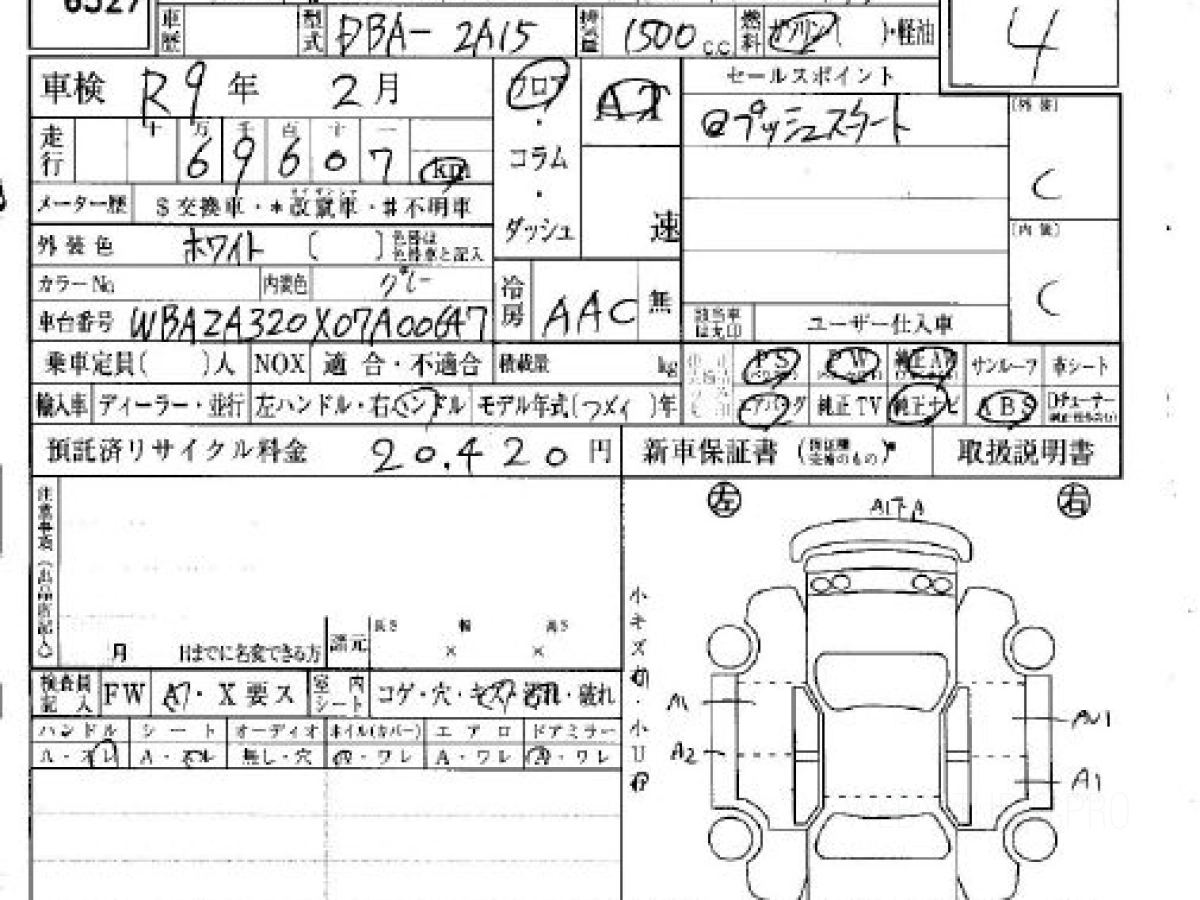 6527
車歴 型式 DBA- 2A15 排気量 1500 c.c. 燃料 ガソリン( )・軽油 4
車検 R9年 2月 フロア AT セールスポイント
十 万 千 百 十 一 〔外装〕
走行 6 9 6 0 7 km ・ コラム ・ ダッシュ 速 @プッシュスタート C
メーター歴 S交換車・*改竄車・#不明車
外装色 ホワイト ( ) 色替は色替車と記入 〔内装〕
カラーNo 内装色 グレー C
車台番号 WBA2A320X07A00647 冷房 AAC 無 該当車は丸印 ユーザー仕入車
乗車定員( )人 NOX 適合・不適合 積載量 kg PS PW 純正AW サンルーフ 革シート
輸入車 ディーラー・並行 左ハンドル・右ハンドル モデル年式( )年 エアバッグ 純正TV 純正ナビ ABS
預託済リサイクル料金 20.420円 新車保証書 取扱説明書
注意事項(出品店記入) 左 右
A1
月 日までに名変できる方 諸元 長さ × 幅 × 高さ
小キズ ・小U
検査員記入 FW A7・X要ス 室内シート コゲ・穴・キズ・汚れ・破れ
ハンドル シート オーディオ ホイル(カバー) エアロ ドアミラー
A・スレ A・スレ 無し・穴 A・ワレ A・ワレ A・ワレ
A1 AU1
A2 A1
PRO